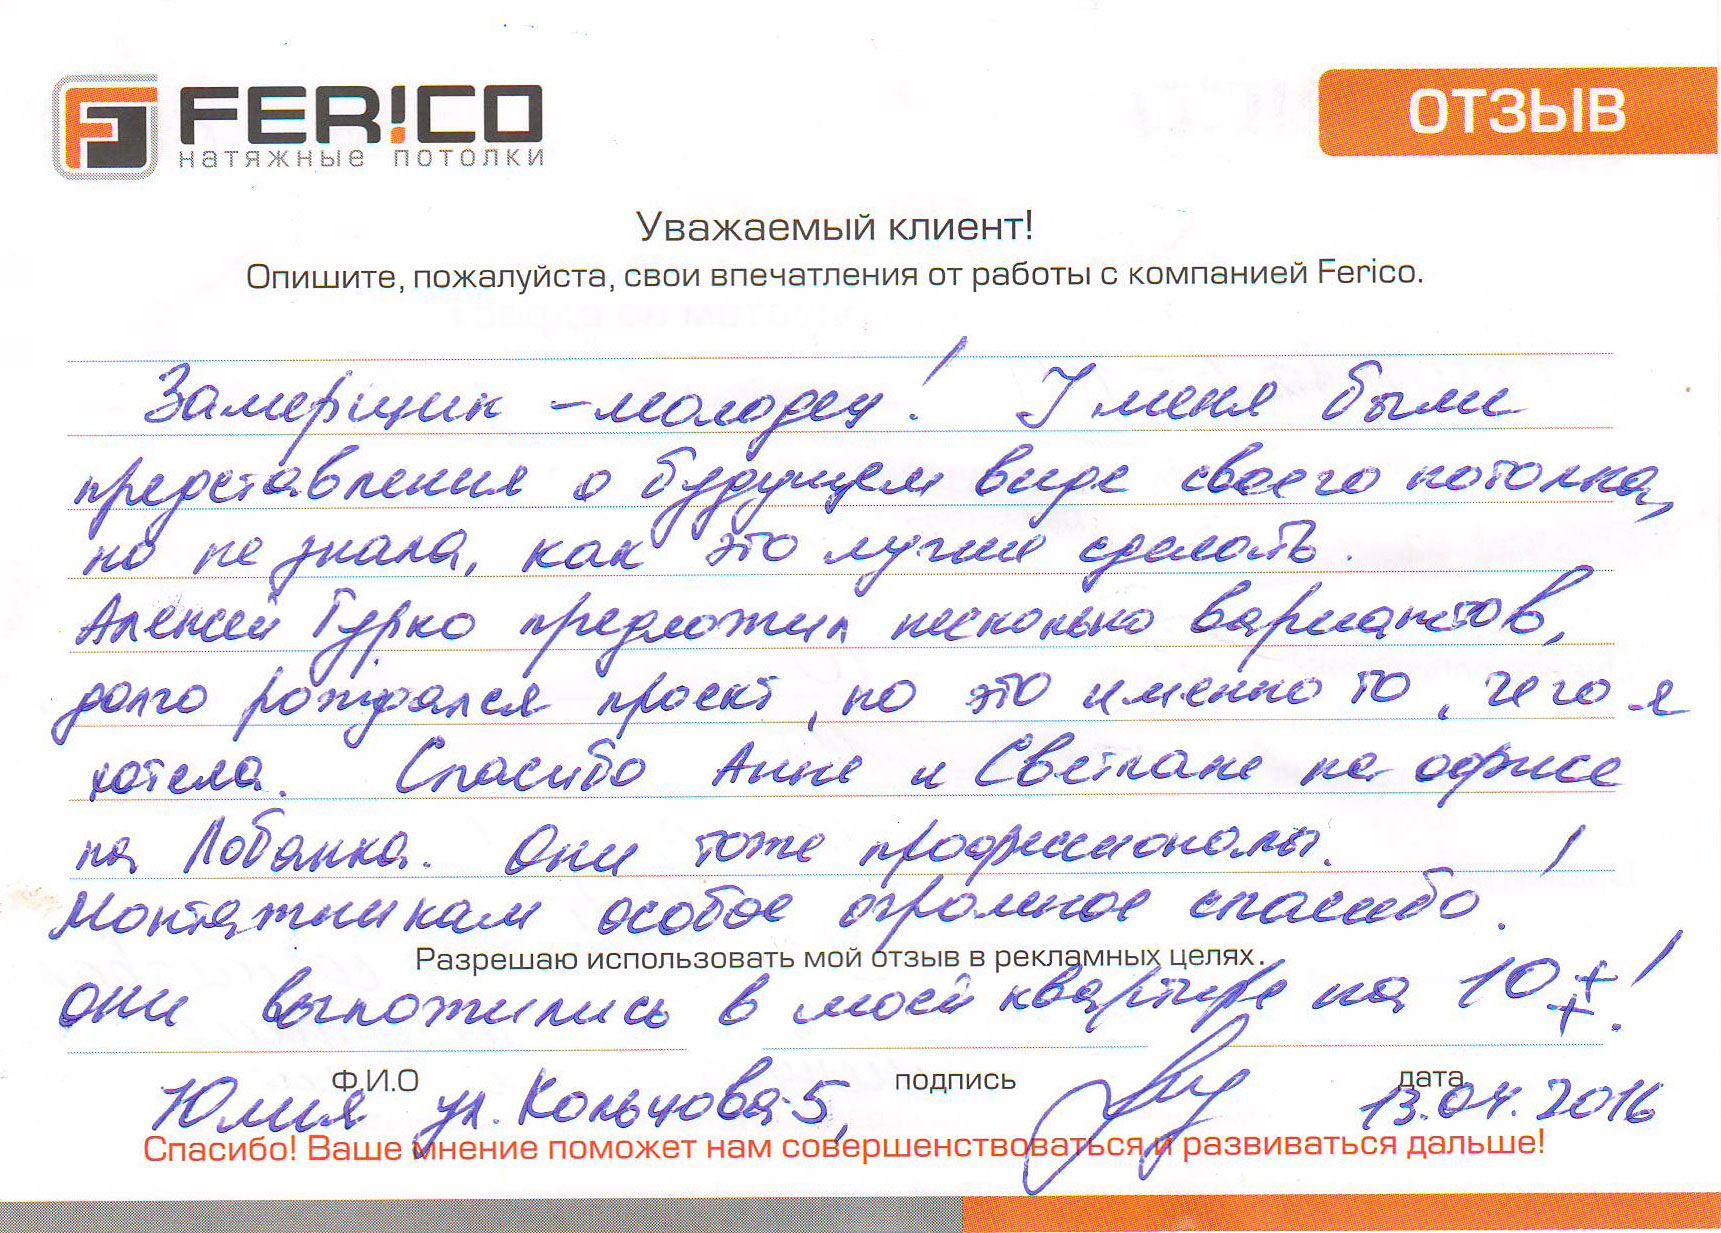 FER!CO
натяжные потолки
ОТЗЫВ
Уважаемый клиент!
Опишите, пожалуйста, свои впечатления от работы с компанией Ferico.
Замерщик – молодец! У меня были
представления о будущем виде своего потолка,
но не знала, как это лучше сделать.
Алексей Гурко предложил несколько вариантов,
долго рождался проект, но это именно то, чего я
хотела. Спасибо Анне и Светлане на офисе
на Лобанка. Они тоже профессионалы.
Монтажникам особое огромное спасибо!
Разрешаю использовать мой отзыв в рекламных целях.
они выложились в моей квартире на 10++!
Ф.И.О подпись дата
Юлия ул. Кольцова-5, 13.04.2016
Спасибо! Ваше мнение поможет нам совершенствоваться и развиваться дальше!